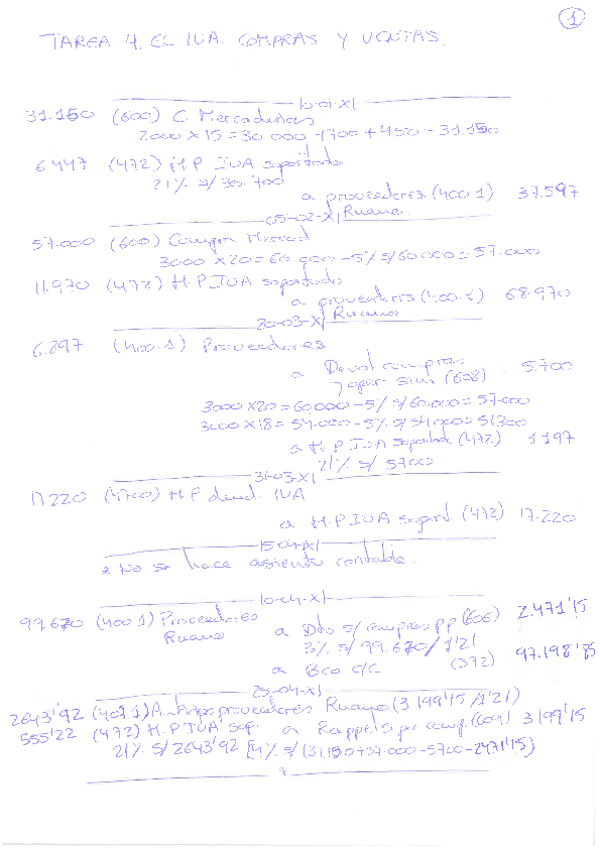 1
TAREA 4. EL IVA. COMPRAS Y VENTAS.
10-01-X1
31.150 (600) C. Mercaderías
2000 x 15 = 30 000 + 700 + 450 = 31.150
6.447 (472) H.P IVA soportado
21% s/ 30.700
a proveedores (400.1) 37.597
05-02-X1 Ruano
57.000 (600) Compra Mercad
3000 x 20 = 60.000 - 5% s/ 60.000 = 57.000
11.970 (472) H.P IVA soportado
a proveedores (400.1) 68.970
20-03-X1 Ruano
6.897 (400.1) Proveedores
a Devol compras
y oper sim (608) 5.700
3000 x 20 = 60.000 - 5% s/ 60.000 = 57.000
3000 x 18 = 54.000 - 5% s/ 54.000 = 51.300
a H.P IVA soportado (472) 1.197
21% s/ 5700
31-03-X1
17.220 (4700) H.P deud. IVA
a H.P.IVA soport. (472) 17.220
15-04-X1
* No se hace asiento contable.
10-04-X1
99.670 (400.1) Proveedores
Ruano a Dto s/ compras pp (606) 2.471'15
3% s/ 99.670/1'21
a Bco c/c (572) 97.198'85
25-04-X1
2643'92 (407.1) Anticipo proveedores Ruano (3199'15/1'21)
555'22 (472) H.P IVA sop. a Rappels por comp (609) 3199'15
21% s/ 2643'92 [4% s/ (31.150+57.000-5700-2471'15)